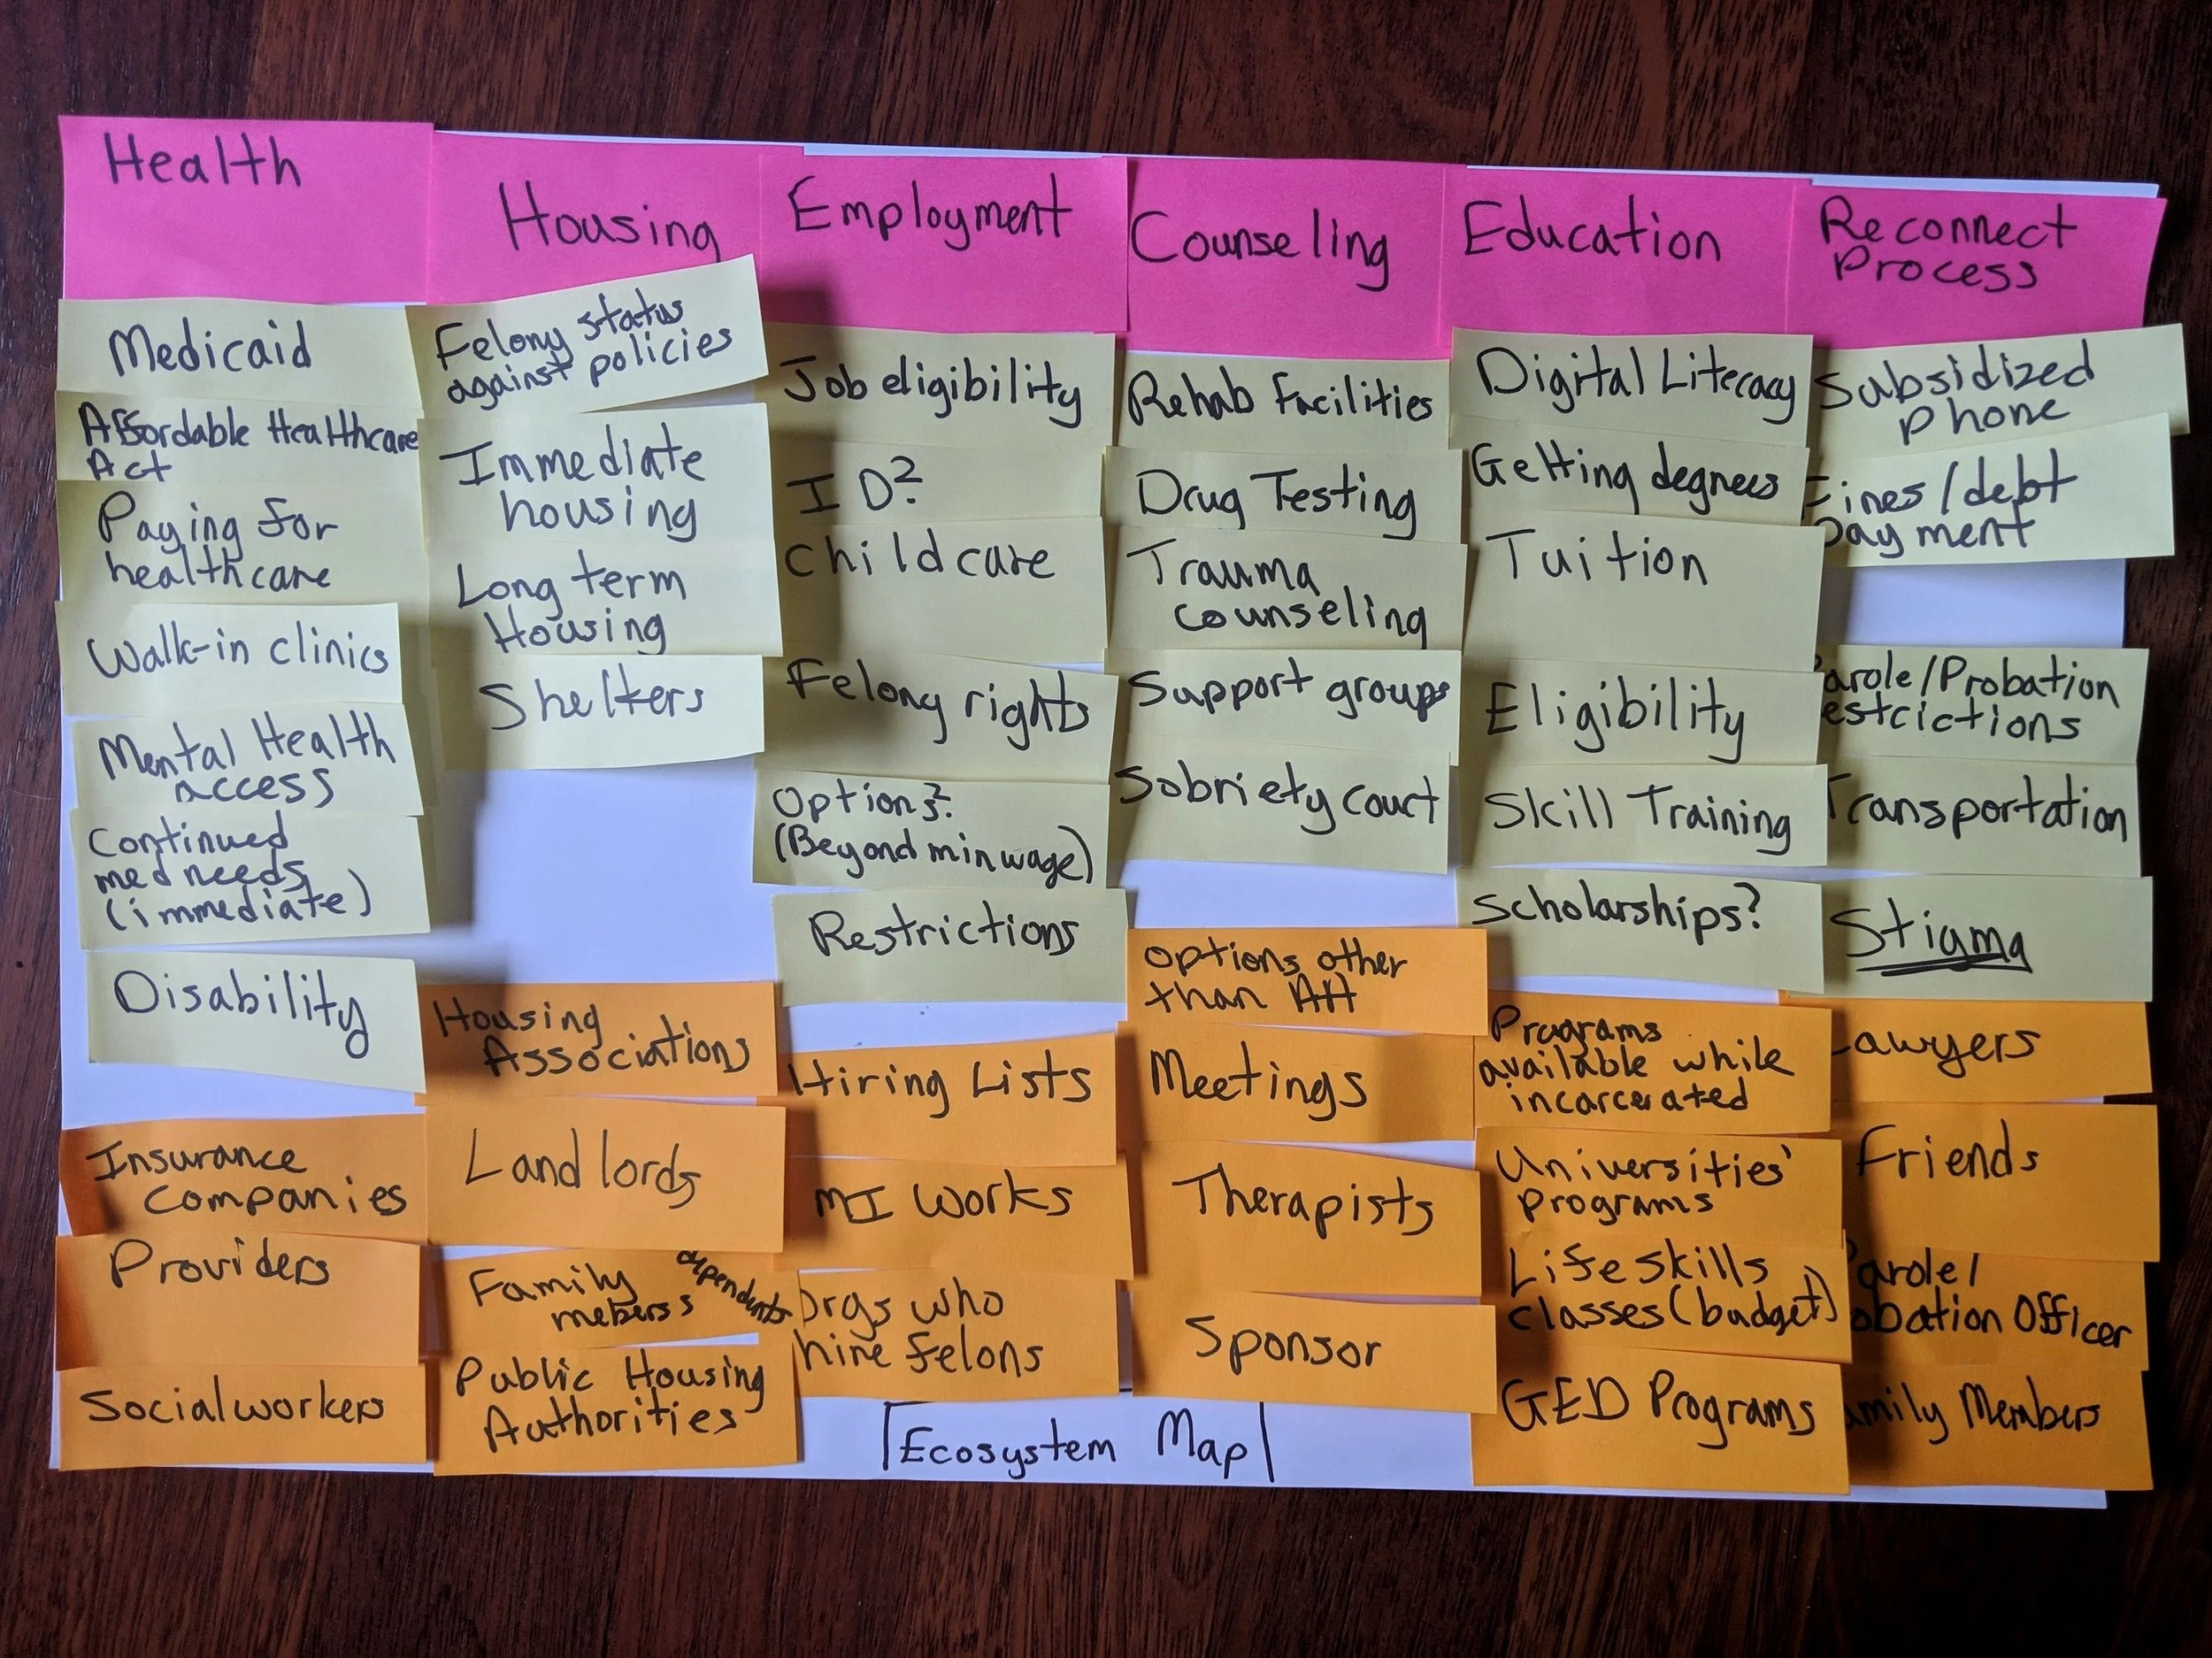 Health
Medicaid
Affordable Healthcare
Act
Paying for
healthcare
Walk-in clinics
Mental Health
access
Continued
med needs
(immediate)
Disability
Insurance
Companies
Providers
Socialworkers
Housing
Felony status
against policies
Immediate
housing
Long term
Housing
Shelters
Housing
Associations
Landlords
Family
mebers
dependents
Public Housing
Authorities
Employment
Job eligibility
ID?
Childcare
Felony rights
Options?
(Beyond min wage)
Restrictions
Hiring Lists
MI Works
Orgs who
hire felons
Counseling
Rehab Facilities
Drug Testing
Trauma
counseling
Support groups
Sobriety court
Options other
than AA
Meetings
Therapists
Sponsor
Education
Digital Literacy
Getting degrees
Tuition
Eligibility
Skill Training
Scholarships?
Programs
available while
incarcerated
Universities'
programs
Life skills
classes (budget)
GED Programs
Reconnect
Process
Subsidized
phone
Fines/debt
payment
arole/Probation
estrictions
Transportation
Stigma
Lawyers
Friends
Parole/
obation Officer
amily Members
Ecosystem Map